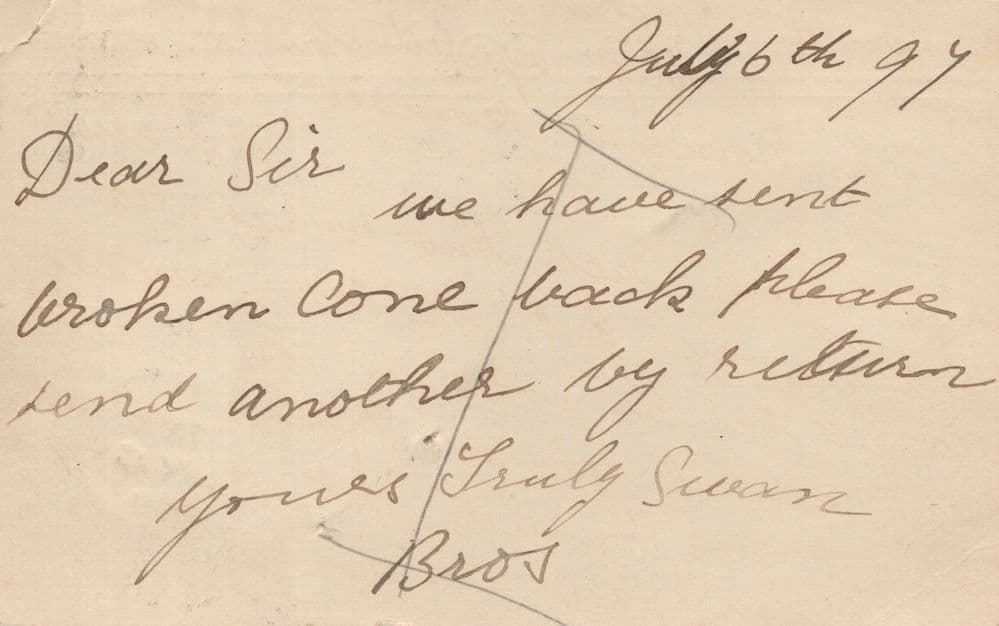 July 6th 97
Dear Sir
we have sent
broken Cone back please
send another by return
yours Truly Swan
Bros